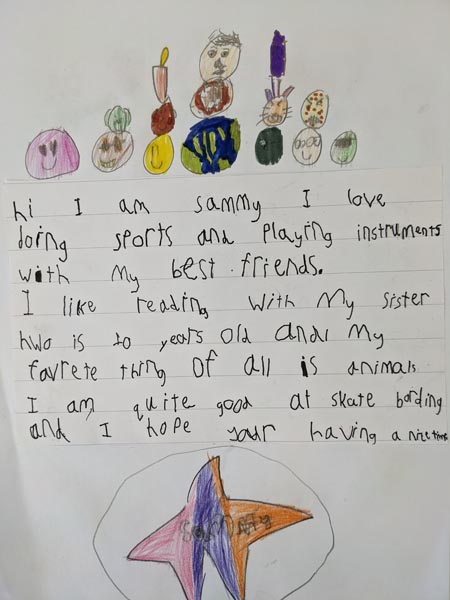 hi I am sammy I love
doing sports and Playing instruments
with My best friends.
I like reading with My sister
hwo is 10 years old and My
favrete thing of all is animals
I am quite good at skate bording
and I hope your having a nice time
sammy